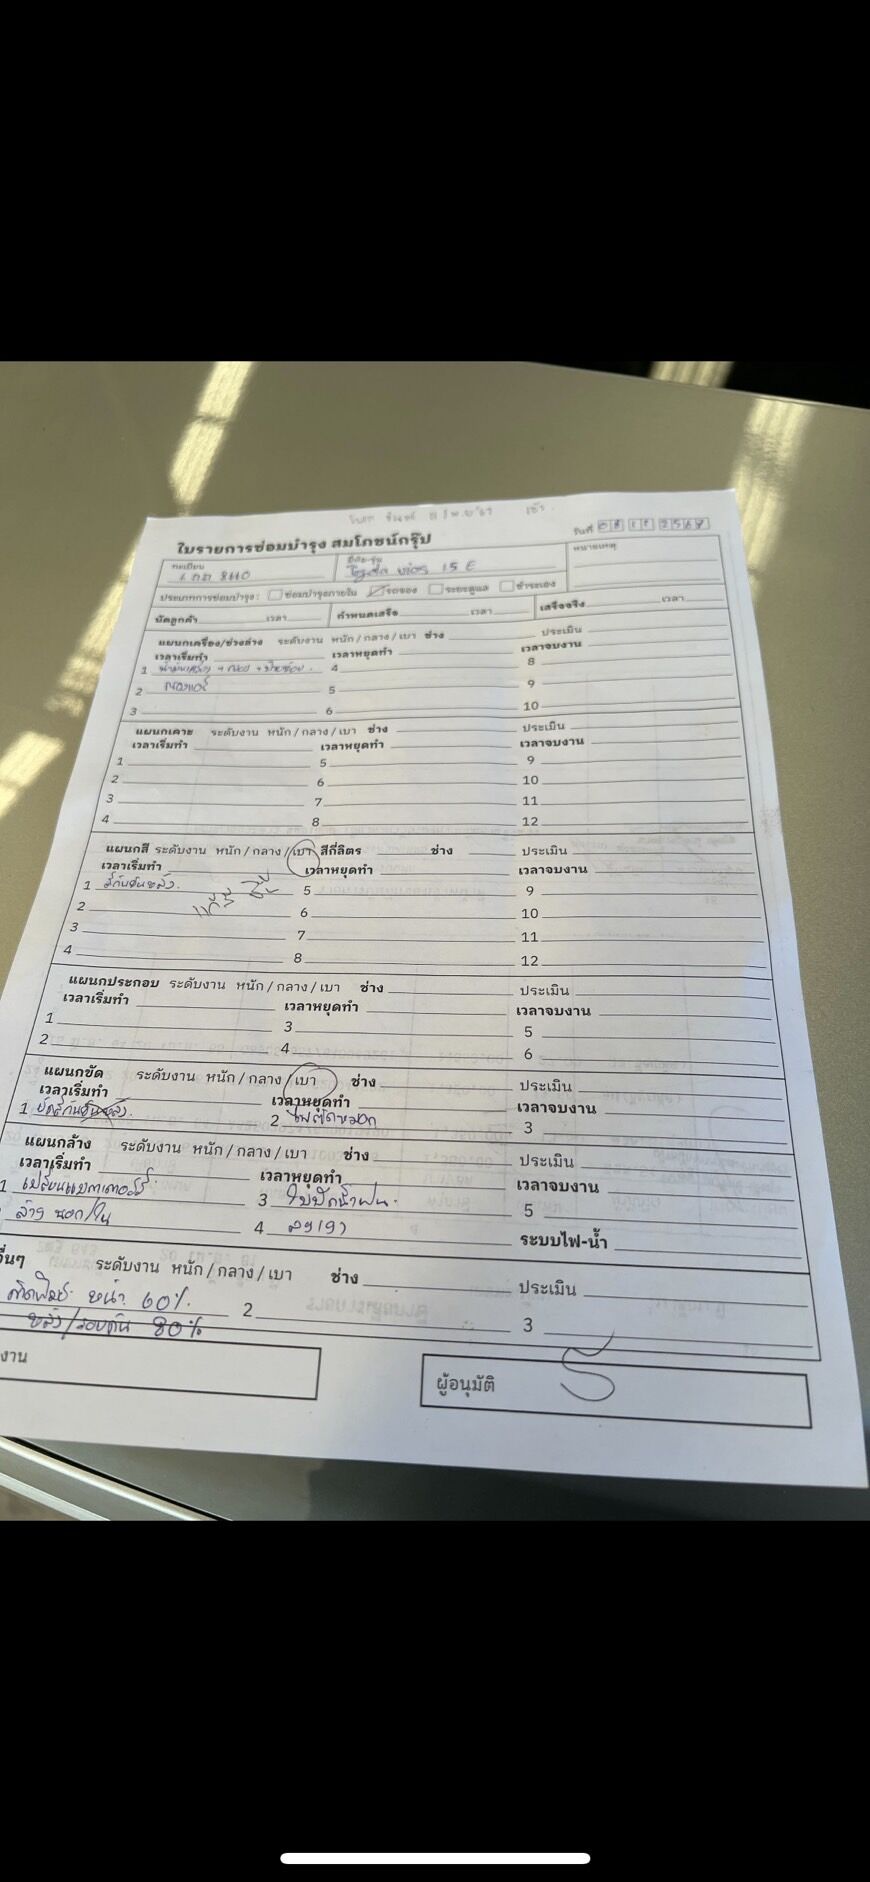 วันที่ 08 11 2567
ใบรายการซ่อมบำรุง สมโภชน์กรุ๊ป
ทะเบียน ยี่ห้อ-รุ่น หมายเหตุ
8110 Toyota vios 1.5 E
ประเภทการซ่อมบำรุง : ซ่อมบำรุงภายใน รถจอง ระยะดูแล ชำระเอง
นัดลูกค้า เวลา กำหนดเสร็จ เวลา เสร็จจริง เวลา
แผนกเครื่อง/ช่วงล่าง ระดับงาน หนัก / กลาง / เบา ช่าง ประเมิน
เวลาเริ่มทำ เวลาหยุดทำ เวลาจบงาน
1 น้ำมันเครื่อง 4 8
2 5 9
3 6 10
แผนกเคาะ ระดับงาน หนัก / กลาง / เบา ช่าง ประเมิน
เวลาเริ่มทำ เวลาหยุดทำ เวลาจบงาน
1 5 9
2 6 10
3 7 11
4 8 12
แผนกสี ระดับงาน หนัก / กลาง / เบา สีกี่ลิตร ช่าง ประเมิน
เวลาเริ่มทำ เวลาหยุดทำ เวลาจบงาน
1 สีกันชนหลัง. 5 9
2 6 10
3 7 11
4 8 12
แผนกประกอบ ระดับงาน หนัก / กลาง / เบา ช่าง ประเมิน
เวลาเริ่มทำ เวลาหยุดทำ เวลาจบงาน
1 3 5
2 4 6
แผนกขัด ระดับงาน หนัก / กลาง / เบา ช่าง ประเมิน
เวลาเริ่มทำ เวลาหยุดทำ เวลาจบงาน
1 ขัดสีกันชนหลัง. 2 ไฟตัดหมอก 3
แผนกล้าง ระดับงาน หนัก / กลาง / เบา ช่าง ประเมิน
เวลาเริ่มทำ เวลาหยุดทำ เวลาจบงาน
1 เปลี่ยนแบตเตอรี่ 3 ใบปัดน้ำฝน. 5
ล้าง นอก/ใน 4 ระบบไฟ-น้ำ
อื่นๆ ระดับงาน หนัก / กลาง / เบา ช่าง ประเมิน
ติดฟิล์ม หน้า 60% 2 3
หลัง/รอบคัน 80%
งาน ผู้อนุมัติ